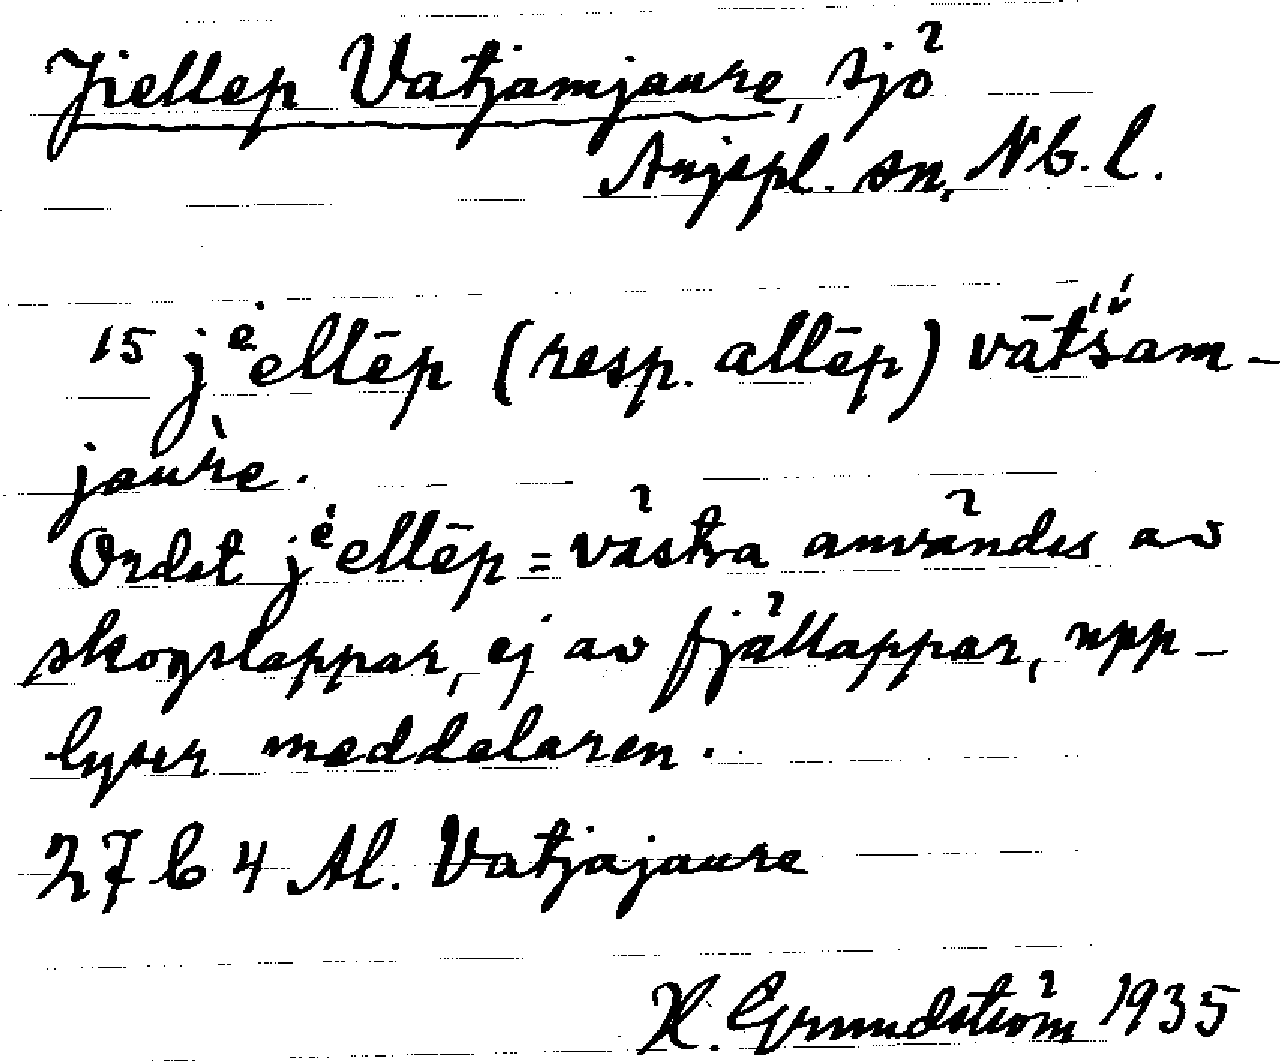 Jiellep Vatjamjaure, sjö
Arjepl. sn. Nb. l.
15 jėellēp (resp. allēp) vātšam-
jaure.
Ordet jėellēp = västra användes av
skogslappar, ej av fjällappar, upp-
lyser meddelaren.
27 b 4 Al. Vatjajaure
H. Grundström 1935